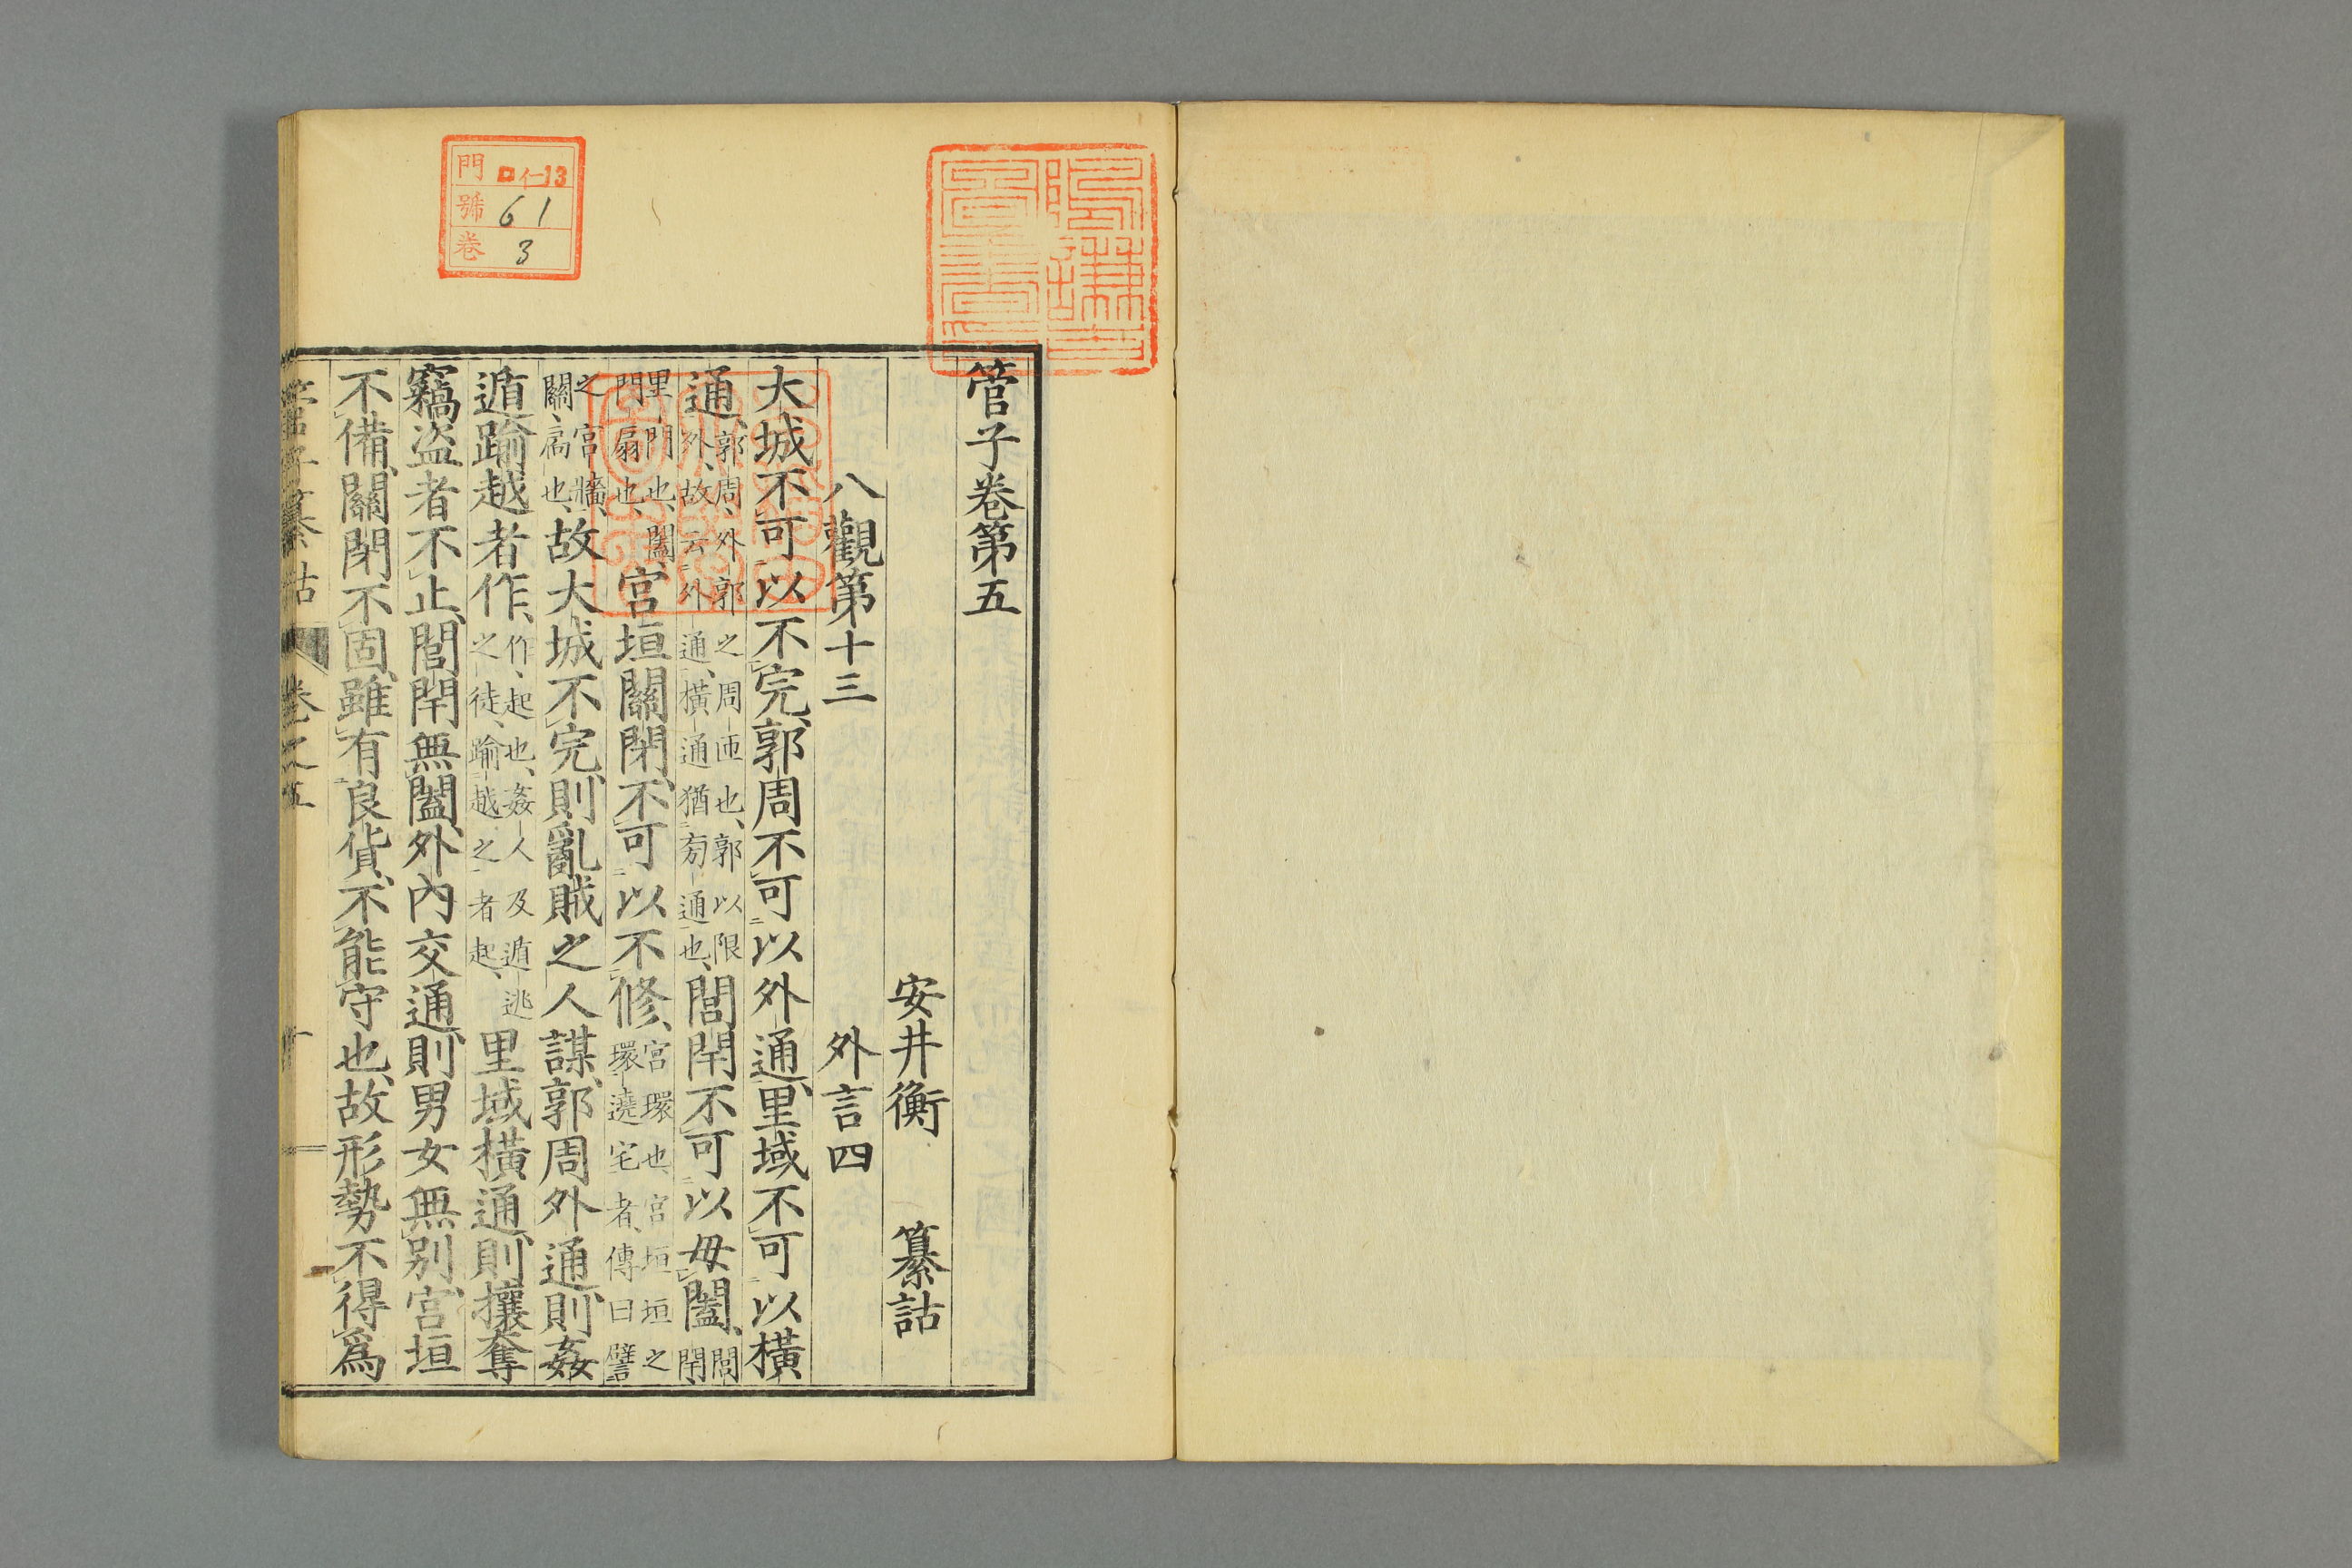 管子卷第五
安井衡 纂詁
八觀第十三 外言四
大城不可以不完、郭周不可以外通、里域不可以橫
通、郭周、外郭之周匝也、郭以限外、故云外通、橫通猶旁通也、閭閈不可以毋闔、閭閈
里門也、闔、門扇也、宮垣關閉、不可以不修、宮環也、宮垣垣之環遶宅者、傳曰譬
之宮牆、關、扃也、故大城不完、則亂賊之人謀、郭周外通、則姦
遁踰越者作、作、起也、姦人及遁逃之徒、踰越之者起、里域橫通、則攘奪
竊盜者不止、閭閈無闔、外內交通、則男女無別、宮垣
不備、關閉不固、雖有良貨、不能守也、故形勢不得爲
管子纂詁 卷之五
門 口仁13
號 61
卷 3